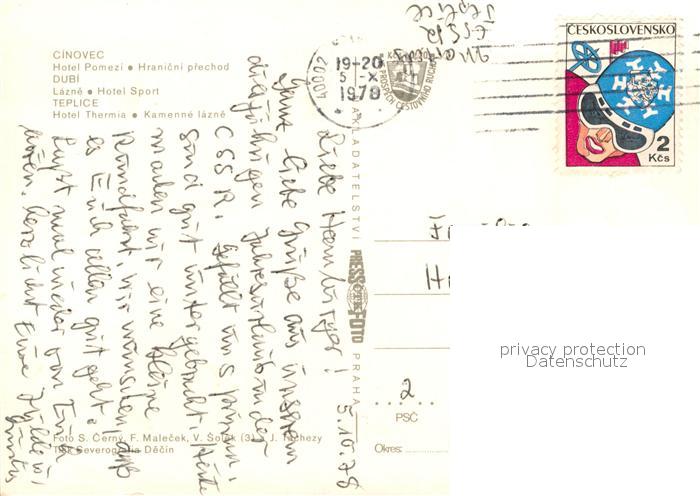 CÍNOVEC
Hotel Pomezí • Hraniční přechod
DUBÍ
Lázně • Hotel Sport
TEPLICE
Hotel Thermia • Kamenné lázně
Teplice
ČSSR
19-20
5 -X
1978
40004
ČESKOSLOVENSKO
2
Kčs
5.10.78
Liebe Hamburger!
Ganz liebe Grüße aus unserem
diesjährigen Jahresurlaub in der
CSSR. Gefällt uns prima,
sind gut untergebracht. Heute
machen wir eine kleine
Rundfahrt. Wir wünschen, daß
es Euch allen gut geht.
Laßt mal wieder von Euch
hören. Herzlichst Eure
NAKLADATELSTVÍ
PRESSFOTO
PRAHA
2
PSČ
Okres:
Foto S. Černý, F. Maleček, V. Šolak (3), J. Tuchezy
Tisk Severografia Děčín
privacy protection
Datenschutz